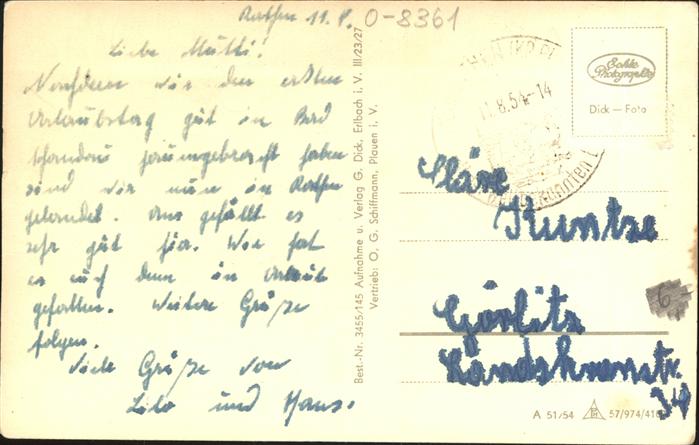 Rathen 11.8.
O-8361
Liebe Mutti!
Nachdem wir den ersten
Urlaubstag gut in Bad
Schandau herumgebracht haben
sind wir nun in Rathen
gelandet. Uns gefällt es
sehr gut hier. Wie hat
es euch denn in
gefallen. Weitere Grüße
folgen.
Viele Grüße von
Lilo und Hans.
Best.-Nr. 3455/145 Aufnahme u. Verlag G. Dick, Erlbach i. V. III/23/27
Vertrieb: O. G. Schiffmann, Plauen i. V.
8.54-14
Echte
Photographie
Dick — Foto
Kläre
Kuntze
Görlitz
Landskronstr.
34
6
A 51/54 57/974/416